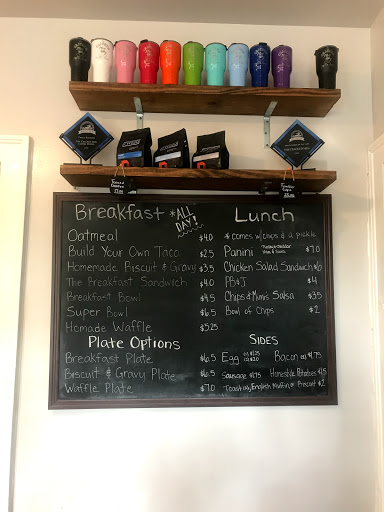 Breakfast *ALL DAY!
Oatmeal $4.0
Build Your Own Taco $2.5
Homemade Biscuit & Gravy $3.5
The Breakfast Sandwich $4.0
Breakfast Bowl $4.5
Super Bowl $6.5
Homade Waffle $5.25
Plate Options
Breakfast Plate $6.5
Biscuit & Gravy Plate $6.5
Waffle Plate $7.0
Lunch
* comes w/ chips & a pickle
Panini $7.0
Chicken Salad Sandwich $6
PB&J $4
Chips & Mimi's Salsa $3.5
Bowl of Chips $2
SIDES
Egg Bacon $1.75
Sausage $1.75 Homestyle Potatoes $1.5
Toast or English Muffin or Biscuit $2